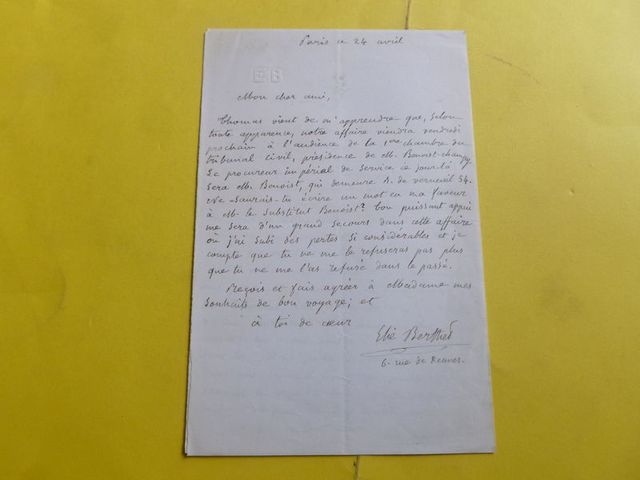 Paris ce 24 avril
EB
Mon cher ami,
Thomas vient de m'apprendre que, selon
toute apparence, notre affaire viendra vendredi
prochain à l'audience de la 1ere chambre du
tribunal civil, présidence de M. Benoit-champy.
Le procureur impérial de service ce jour là
sera M. Benoist, qui demeure r. de verneuil 54.
Ne saurais-tu écrire un mot en ma faveur
à M. le substitut Benoist? ton puissant appui
me sera d'un grand secours dans cette affaire
où j'ai subi des pertes si considérables et je
compte que tu ne me le refuseras pas plus
que tu ne me l'as refusé dans le passé.
Reçois et fais agréer à Madame mes
souhaits de bon voyage; et
à toi de cœur
Elie Berthet
6- rue de Rennes.